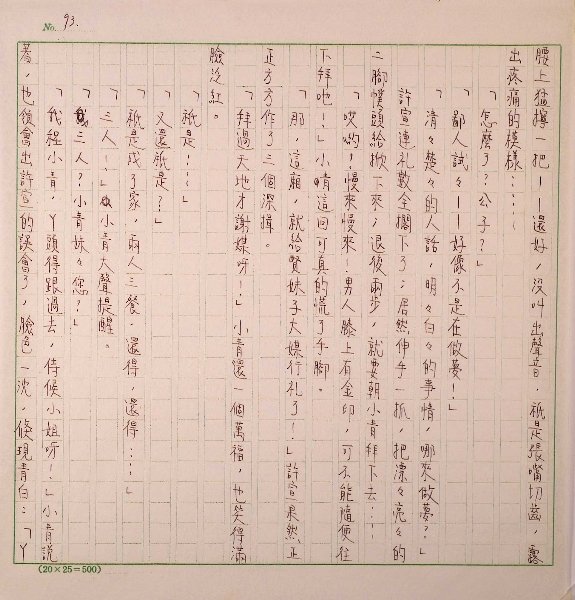 No. 93.
腰上猛擰一把——還好，沒叫出聲音，祇是張嘴切齒，露
出疼痛的模樣……
「怎麼了？公子？」
「鄙人試々——好像不是在做夢！」
「清々楚々的人話，明々白々的事情，哪來做夢？」
許宣連礼數全擱下了；居然伸手一抓，把漂々亮々的
二腳幞頭給掀下來，退後兩步，就要朝小青拜下去……
「哎喲！慢來慢來！男人膝上有金印，可不能隨便往
下拜吔！」小晴這回可真的慌了手腳。
「那，這廂，就給賢妹子大媒行礼了！」許宣果然正
正方方作了三個深揖。
「拜過天地才謝媒呀！」小青還一個萬福，也笑得滿
臉泛紅。
「祇是……」
「又還祇是？」
「祇是成了家，兩人三餐，還得，還得……」
「三人！」小青大聲提醒。
「三人？小青妹々您？」
「我程小青，丫頭得跟過去，侍候小姐呀！」小青說
著，也領會出許宣的誤會了，臉色一沈，倏現青白：「丫
(20×25=500)